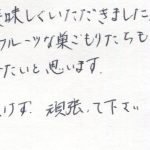 美味しくいただきました
フルーツな巣ごもりたちも
たいと思います.
ります. 頑張って下さい